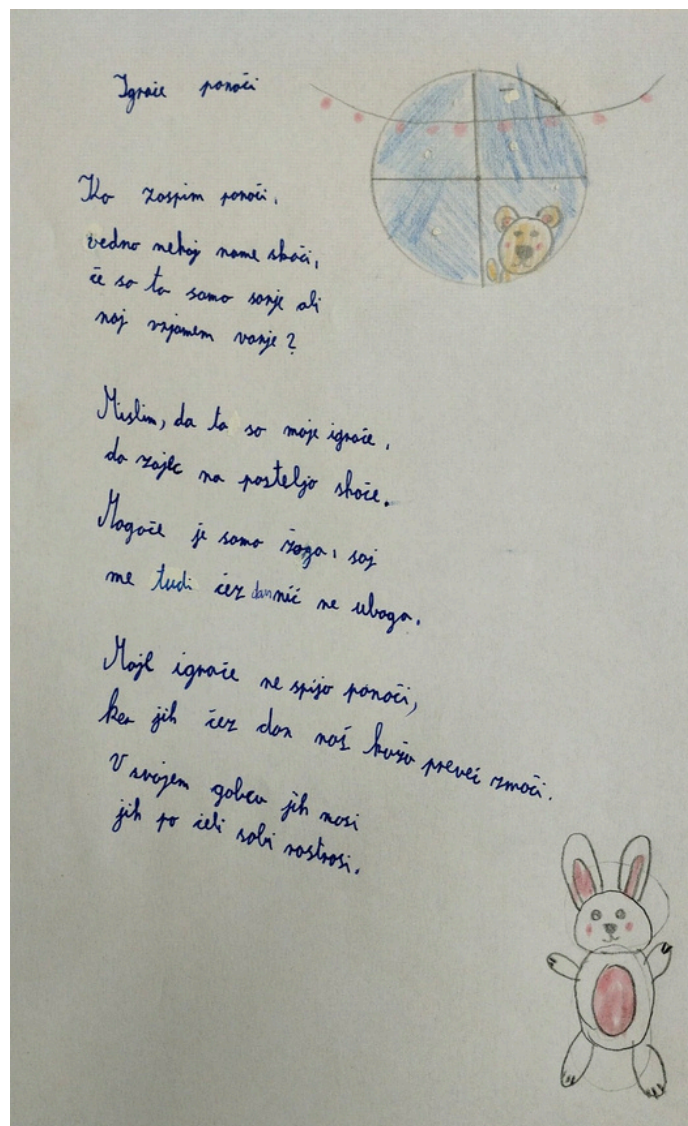 Igrače ponoči
Ko zaspim ponoči,
vedno nekaj name skoči,
če so to samo sanje ali
naj vzjamem vanje?
Mislim, da to so moje igrače,
da zajec na posteljo skače.
Mogoče je samo žoga, saj
me tudi čez dan nič ne uboga.
Moje igrače ne spijo ponoči,
ker jih čez dan naš kuža preveč zmoči.
V svojem gobcu jih nosi
jih po celi sobi raztrosi.